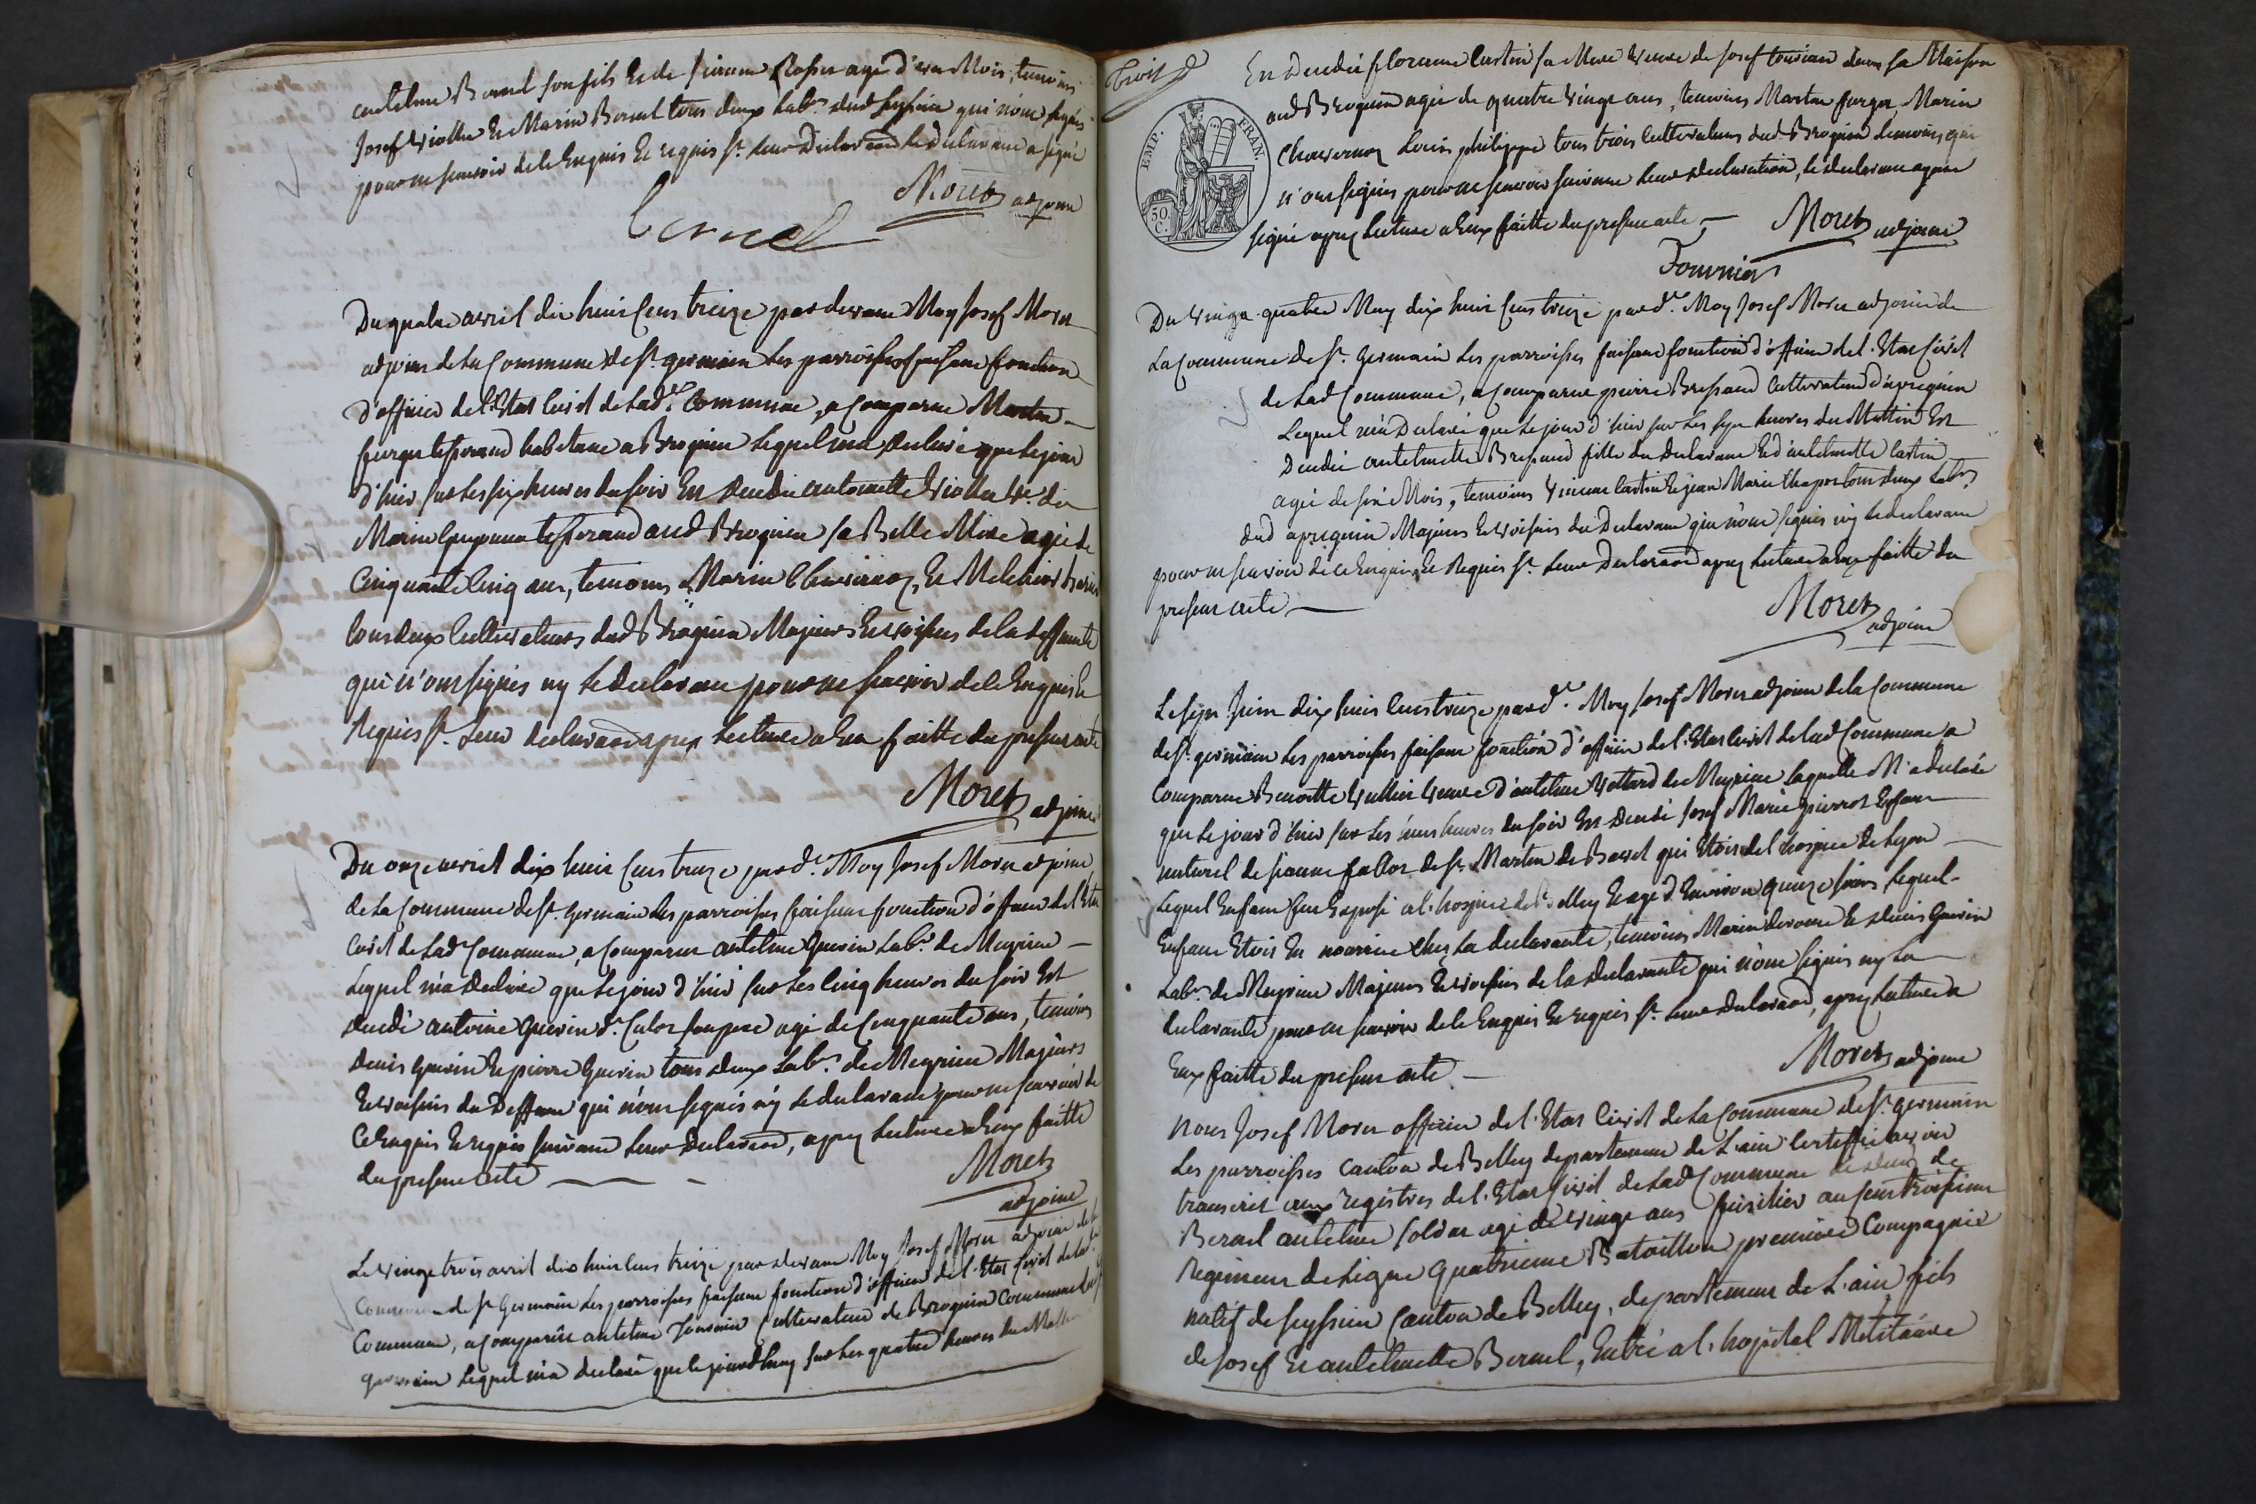 antelme Bernel son fils et de jeanne agé d'un Mois, temoins
Josef Viollet et Marin Bernel tous deux lab.rs dud Seyssieu qui n'ont signés
pour ne scavoir de ce enquis et requis st. leur le declarant a signé
Moret adjoint
Bernel
Du quatre avril dix huit cens treize par devant Moy Josef Moret
adjoint de la Commune de St. germain les parroisses faisant fonction
d'officier de l'Etat Civil de lad.e Commune, a Comparu Martin
habitant a Brognin lequel m'a declaré que le jour
d'hier sur les six heures du soir est decedée antoinette Viollet Ve. de
Marin aud Brognin sa Belle Mere agée de
Cinquante Cinq ans, temoins Marin Chavannoz, et Melchior
tous deux Cultivateurs dud Brognin Majeurs et voisins de la deffunte
qui n'ont signés ny le declarant pour ne scavoir de ce enquis et
Requis st. leur declaraon apres lecture a eux faitte du present acte
Moret adjoint
Du onze avril dix huit Cens treize pard.t Moy Josef Moret adjoint
de la Commune de St. Germain les parroisses faisant fonction d'officier de l'Etat
Civil de lad.e Commune, a Comparu antelme Guerin lab.r de Meyrieu
lequel m'a declaré que le jour d'hier sur les cinq heures du soir Est
decedé antoine Guerin son pere agé de Cinquante ans, temoins
denis Guerin et pierre Guerin tous deux lab.rs de Meyrieu Majeurs
et voisins du Deffunt qui n'ont signés ny le declarant pour ne scavoir de
Ce enquis et requis suivant leur declaraon, apres lecture a eux faitte
du present acte
Moret
adjoint
Le vingt trois avril dix huit cens treize par devant Moy Josef Moret adjoint de la
Commune de St Germain les parroisses faisant fonction d'officier de l'Etat Civil de lad.e
Commune, a comparu antelme Cultivateur de Brognin Commune de St
germain lequel m'a declaré que le jourdhuy sur les quatre heures du Mattin
Trois
Est Decedée florianne Castin sa Mere veuve de Josef dans sa Maison
aud Brognin agée de quatre vingt ans, temoins Martin Marin
Chavannoz Louis philippe tous trois Cultivateurs dud Brognin temoins qui
n'ont signés pour ne scavoir suivant leur declaration, le declarant ayant
signé apres lecture a eux faitte du present acte
Moret adjoint
EMP. FRAN.
50 C.
Fournier
Du vingt quatre May dix huit Cens treize pard.t Moy Josef Moret adjoint de
La Commune de St. Germain les parroisses faisant fonction d'officier de l'Etat Civil
de lad Commune, a Comparu pierre Bressand Cultivateur d'apregnin
Lequel m'a Declaré que le jour d'hier sur les sept heures du Mattin Est
Decedée antelmette Bressand fille du declarant et d'antelmette Castin
agée de six Mois, temoins Vincent Castin et jean Marie tous deux lab.rs
dud apregnin Majeurs et voisins du Declarant qui n'ont signés ny le declarant
pour ne scavoir de ce enquis et Requis st. leur Declaraon apres lecture a eux faitte du
present acte
Moret
adjoint
Le sept Juin dix huit Cens treize pard.t Moy Josef Moret adjoint de la Commune
de St. germain les parroisses faisant fonction d'officier de l'Etat Civil de lad Commune a
Comparue Benoitte Vullier veuve d'antelme de Meyrieu laquelle M'a declaré
que le jour d'hier sur les heures du soir Est Decedé Josef Marie pierrot enfant
naturel de jeanne de St. Martin de Bavel qui Etoit de l'hospice de Lyon
lequel Enfant fut exposé a l'hospice de Belley et agé d'Environ quinze jours lequel
Enfant Etoit en nourrice chez la declarante, temoins Marin et denis Guerin
lab.rs de Meyrieu Majeurs et voisins de la declarante qui n'ont signés ny la
declarante pour ne scavoir de ce Enquis et requis st. leur declaraon, apres lecture a
Eux faitte du present acte
Moret adjoint
Nous Josef Moret officier de l'Etat Civil de la Commune de St. germain
Les parroisses Canton de Belley departement de L'ain Certiffie avoir
transcrit aux registres de l'Etat Civil de lad Commune le deces de
Bernel antelme Soldat agé de vingt ans fusilier au Cent troisieme
Regiment de ligne quatrieme Bataillon premiere Compagnie
natif de Seyssieu Canton de Belley, departement de L'ain fils
de Josef et antelmette Bernel, Entré a l'hopital Militaire